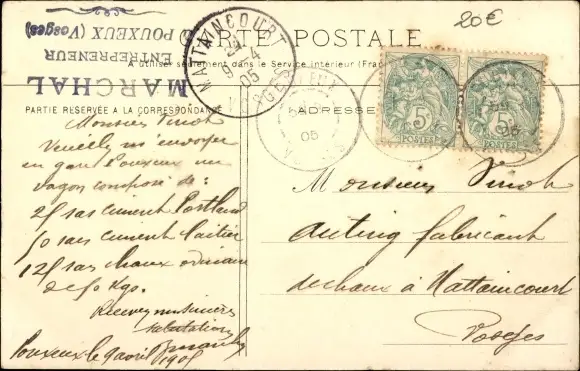 20€
CARTE POSTALE
A utiliser seulement dans le Service Intérieur (Fran
MARCHAL
ENTREPRENEUR
POUXEUX (Vosges)
MATTAINCOURT
9 - 4
05
VOSGES
POUXEUX
05
VOSGES
5c
POSTES
5c
POSTES
PARTIE RÉSERVÉE A LA CORRESPONDANCE
ADRESSE
Monsieur Vinot
Veuillez m'envoyer
en gare Pouxeux un
wagon composé de :
25 sacs ciment Portland
50 sacs ciment laitier
125 sacs chaux ordinaire
de 50 kgs.
Recevez mes sincères
salutations
Pouxeux le 9 avril 1905
Monsieur Vinot
fabricant
de chaux à Mattaincourt
Vosges